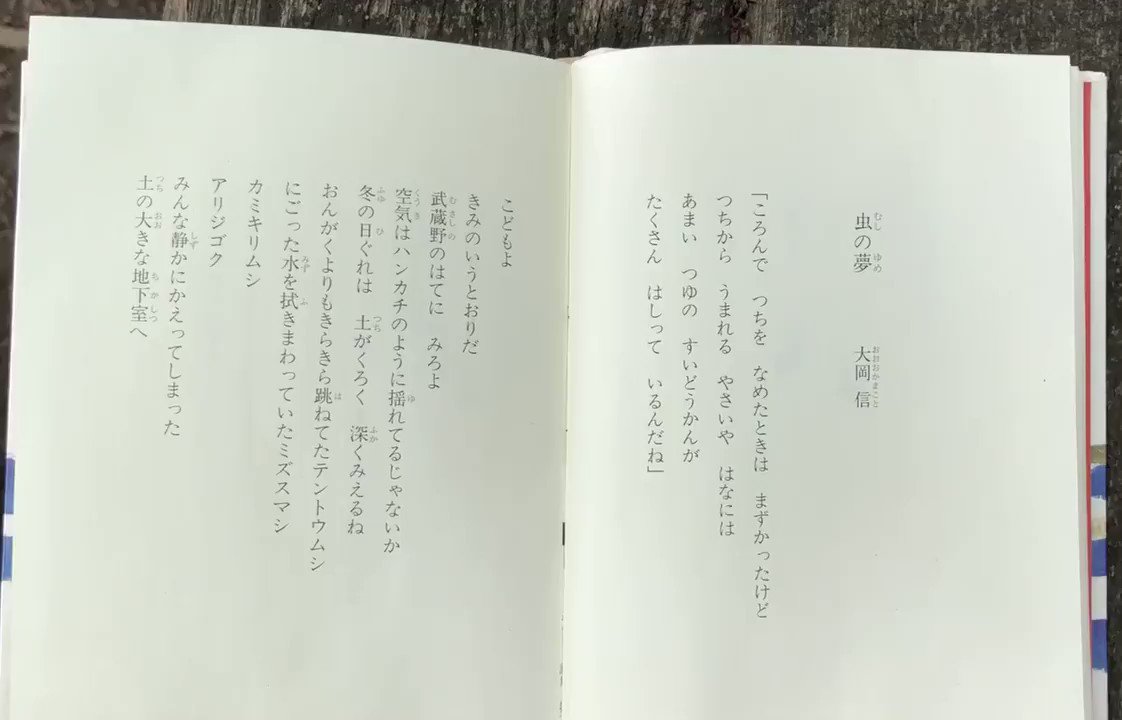 虫の夢　大岡 信
「ころんで　つちを　なめたときは　まずかったけど
つちから　うまれる　やさいや　はなには
あまい　つゆの　すいどうかんが
たくさん　はしって　いるんだね」
こどもよ
きみのいうとおりだ
武蔵野のはてに　みろよ
空気はハンカチのように揺れてるじゃないか
冬の日ぐれは　土がくろく　深くみえるね
おんがくよりもきらきら跳ねてたテントウムシ
にごった水を拭きまわっていたミズスマシ
カミキリムシ
アリジゴク
みんな静かにかえってしまった
土の大きな地下室へ